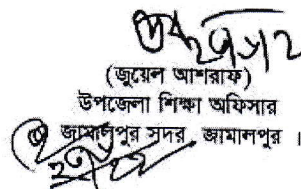 (জুয়েল আশরাফ)
উপজেলা শিক্ষা অফিসার
জামালপুর সদর, জামালপুর ।